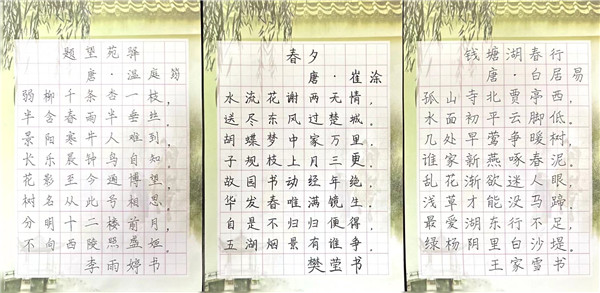 题望苑驿
唐·温庭筠
弱柳千条杏一枝,
半含春雨半垂丝.
景阳寒井人难到,
长乐晨钟鸟自知.
花影至今通博望,
树名从此号相思.
分明十二楼前月,
不向西陵照盛姬.
李雨婷书
春夕
唐·崔涂
水流花谢两无情,
送尽东风过楚城.
胡蝶梦中家万里,
子规枝上月三更.
故园书动经年绝,
华发春唯满镜生.
自是不归归便得,
五湖烟景有谁争.
樊莹书
钱塘湖春行
唐·白居易
孤山寺北贾亭西,
水面初平云脚低.
几处早莺争暖树,
谁家新燕啄春泥.
乱花渐欲迷人眼,
浅草才能没马蹄.
最爱湖东行不足,
绿杨阴里白沙堤.
王家雪书